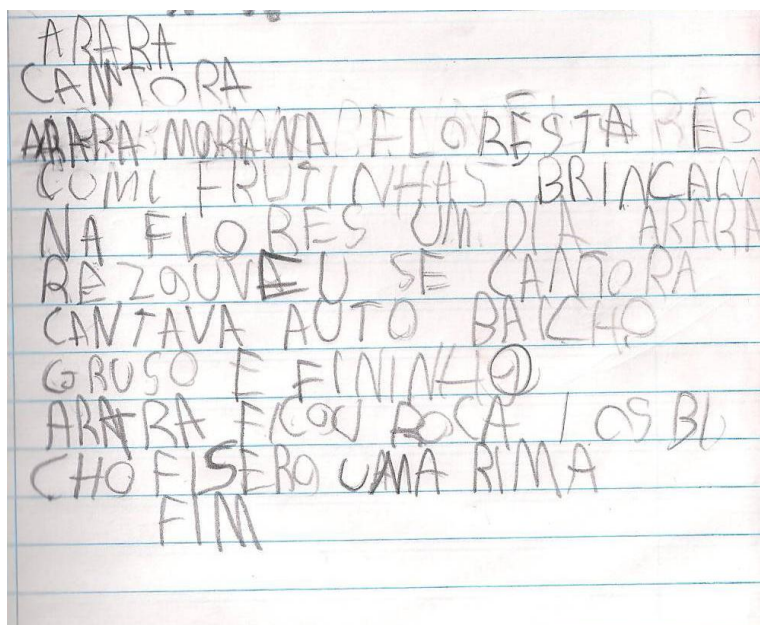 ARARA
CANTORA
ARARA MORA NA FLORESTA
COMI FRUTINHAS BRINCAM
NA FLORES UM DIA ARARA
REZOUVEU SE CANTORA
CANTAVA AUTO BAICHO
GRUSO E FININHO
ARARA FICOU ROCA I OS BI
CHO FISERO UMA RIMA
FIM